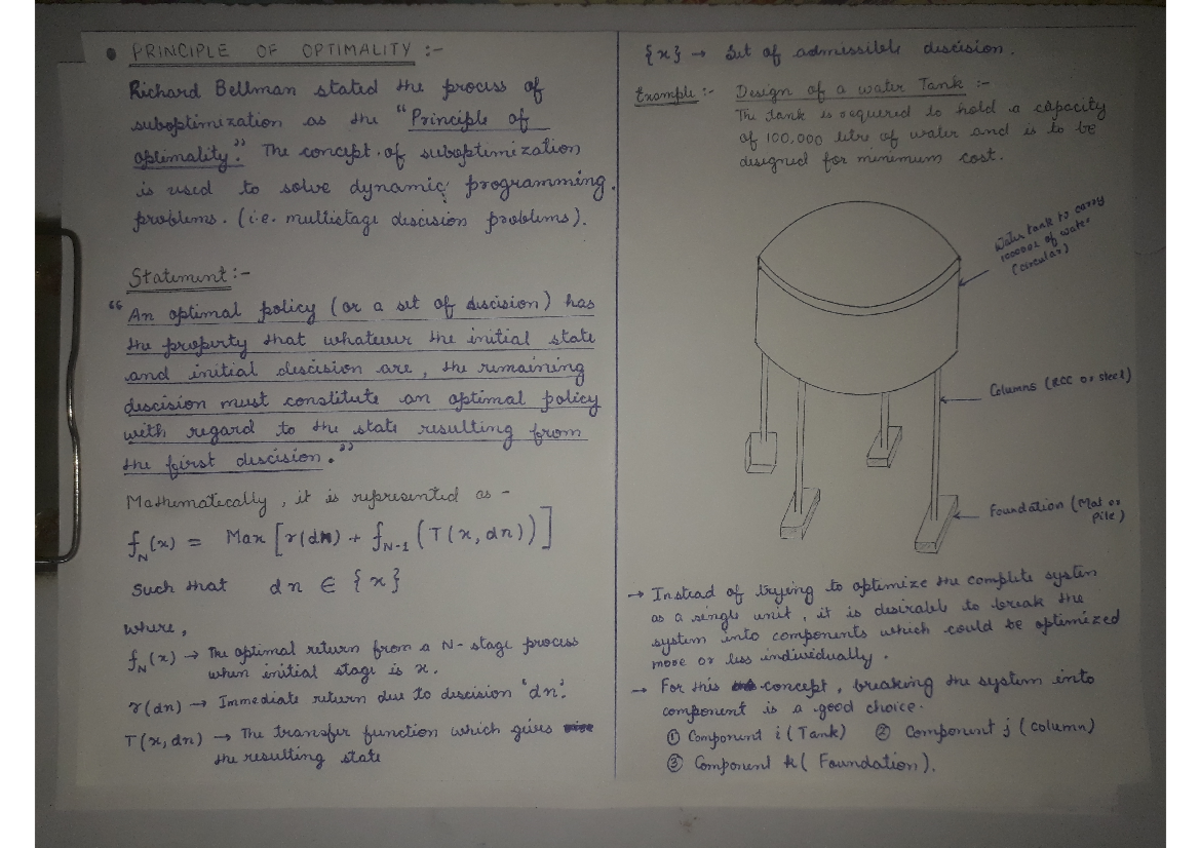 PRINCIPLE OF OPTIMALITY :-
Richard Bellman stated the process of
suboptimization as the "Principle of
optimality." The concept of suboptimization
is used to solve dynamic programming
problems. (i.e. multistage descision problems).
Statement :-
"An optimal policy (or a set of discision) has
the property that whatever the initial state
and initial descision are, the remaining
descision must constitute an optimal policy
with regard to the state resulting from
the first descision."
Mathematically, it is represented as -
f_N(x) = Max [r(dn) + f_N-1 (T(x, dn))]
Such that dn ∈ {x}
where,
f_N(x) → The optimal return from a N-stage process
when initial stage is x.
r(dn) → Immediate return due to discision 'dn'.
T(x, dn) → The transfer function which gives
the resulting state
{x} → Set of admissible discision.
Example :- Design of a water Tank :-
The tank is required to hold a capacity
of 100,000 litre of water and is to be
designed for minimum cost.
Water tank to carry
100000L of water
(circular)
Columns (RCC or steel)
Foundation (Mat or
Pile)
→ Instead of trying to optimize the complete system
as a single unit, it is desirable to break the
system into components which could be optimized
more or less individually.
→ For this concept, breaking the system into
component is a good choice.
① Component i (Tank) ② Component j (column)
③ Component k (Foundation).